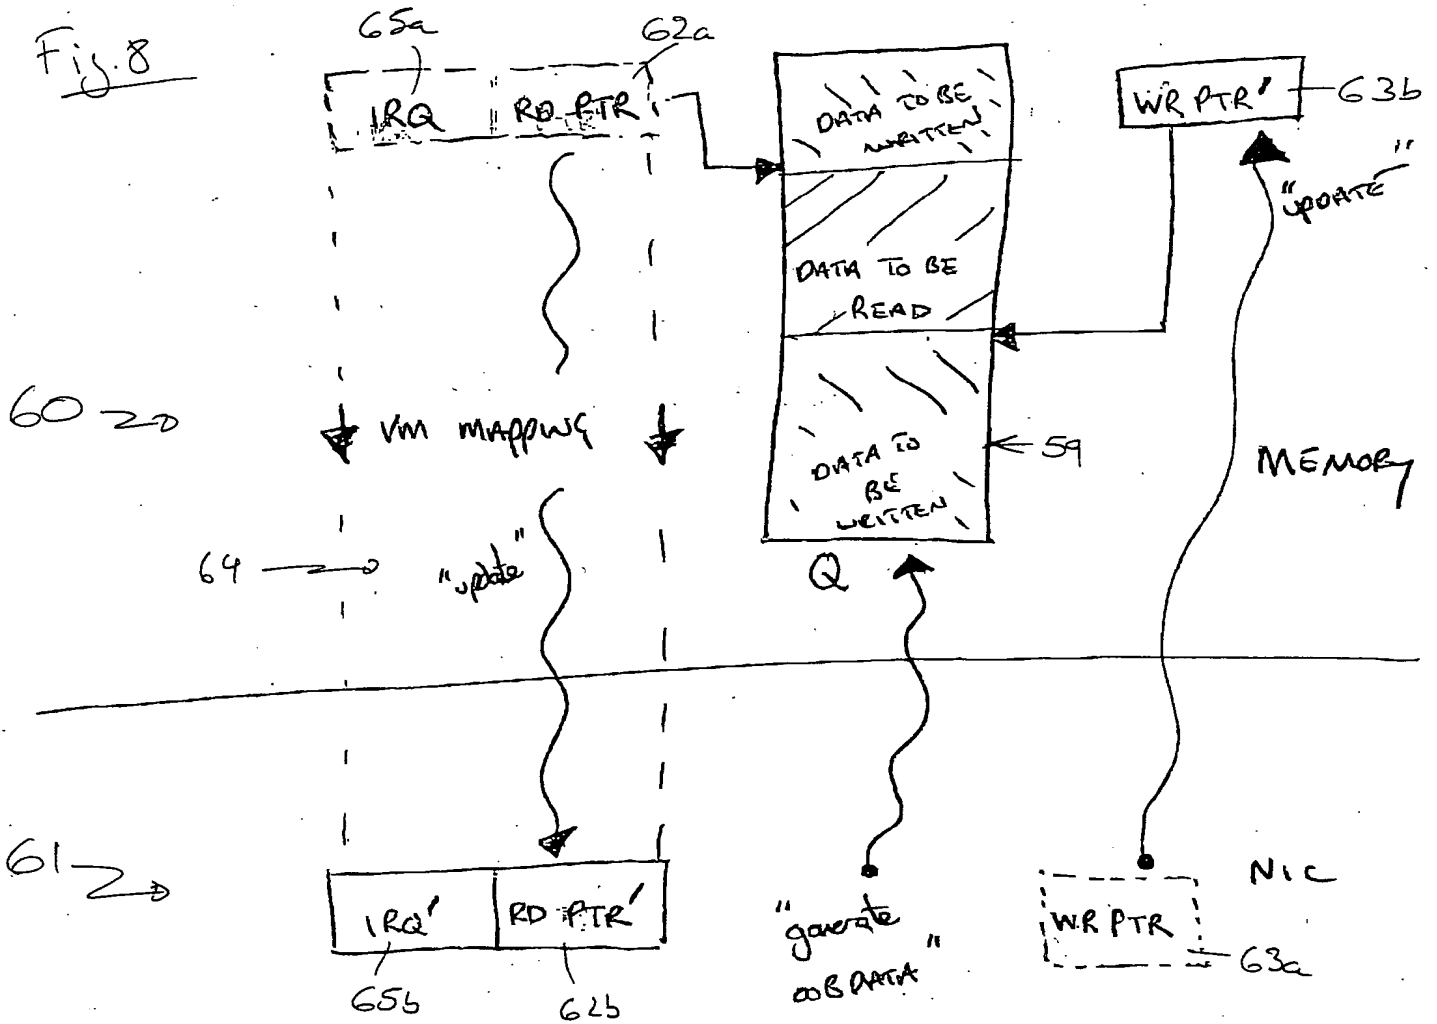 Fig. 8
65a
62a
IRQ
RD PTR
DATA TO BE
WRITTEN
WR PTR'
63b
"UPDATE"
DATA TO BE
READ
60
VM MAPPING
DATA TO
BE
WRITTEN
59
MEMORY
64
"update"
Q
61
IRQ'
RD PTR'
"generate
OOB DATA"
NIC
WR PTR
63a
65b
62b